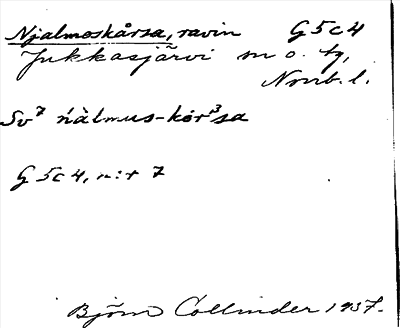 Njalmoskårsa, ravin G5c4
Jukkasjärvi sn o. tg,
Nrrb. l.
Sv⁷ ńàlmus-kór³sa
G 5c 4, n:r 7
Björn Collinder 1937.